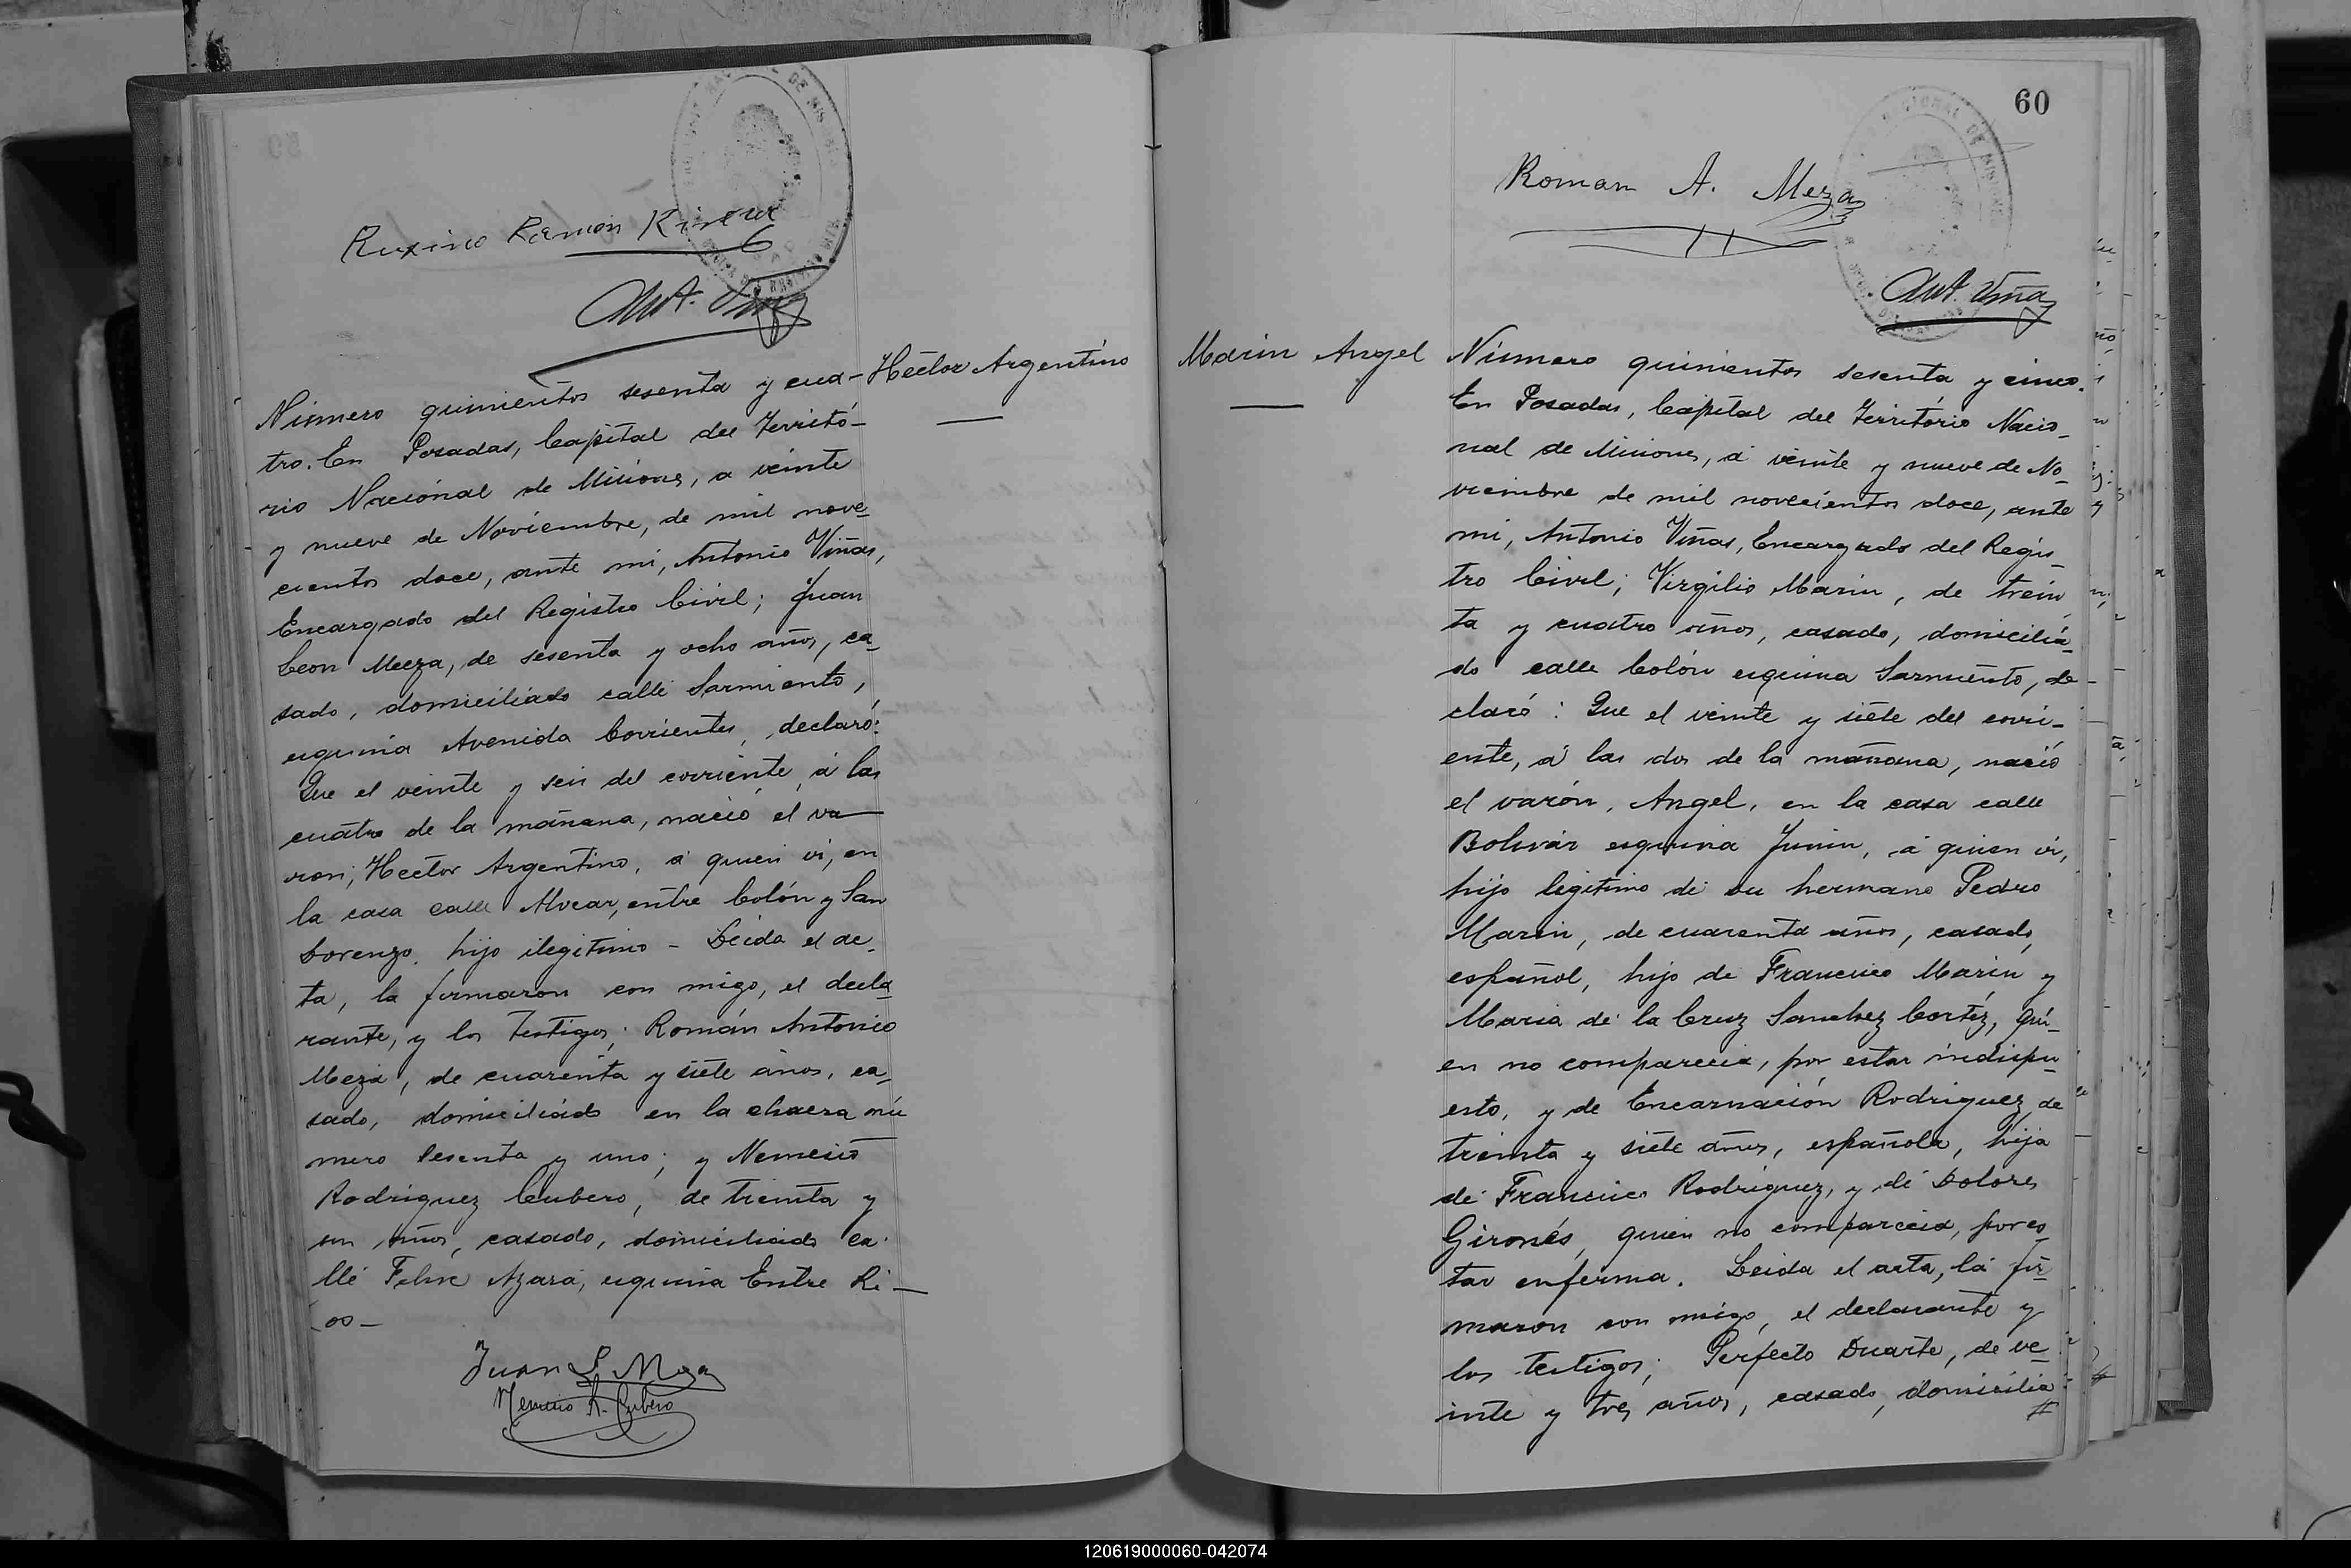 Ramón
Ant. Viñas
Número quinientos sesenta y cua-
Hector Argentino
tro. En Posadas, Capital del Territó-
rio Nacional de Misiones, a veinte
y nueve de Noviembre, de mil nove-
cientos doce, ante mi, Antonio Viñas,
Encargado del Registro Civil; Juan
Leon Meza, de sesenta y ocho años, ca-
sado, domiciliado calle Sarmiento,
esquina Avenida Corrientes, declaró:
Que el veinte y seis del corriente á las
cuatro de la mañana, nació el va-
ron, Hector Argentino, á quien vi, en
la casa calle Alvear, entre Colón y San
Lorenzo, hijo ilegitimo - Leida el ac-
ta, la firmaron con migo, el decla-
rante, y los testigos; Román Antonio
Meza, de cuarenta y siete años, ca-
sado, domiciliado en la chacra nú-
mero sesenta y uno; y Nemesio
Rodriguez Cubero, de treinta y
un años, casado, domiciliado ca-
lle Felix Azara, esquina Entre Ri-
os-
Juan L Meza
Nemesio R. Cubero
60
Roman A. Meza
Ant. Viñas
Marin Angel
Número quinientos sesenta y cinco.
En Posadas, Capital del Território Nacio-
nal de Misiones, á veinte y nueve de No-
viembre de mil novecientos doce, ante
mi, Antonio Viñas, Encargado del Regis-
tro Civil; Virgilio Marin, de trein-
ta y cuatro años, casado, domicilia-
do calle Colón esquina Sarmiento, de-
claró: Que el veinte y siete del corri-
ente, á las dos de la mañana, nació
el varón, Angel, en la casa calle
Bolivar esquina Junin, á quien vi,
hijo legitimo de su hermano Pedro
Marin, de cuarenta años, casado,
español, hijo de Francisco Marin y
Maria de la Cruz Sanchez Cortéz, qui-
en no comparecia, por estar indispu-
esto, y de Encarnación Rodriguez de
treinta y siete años, española, hija
de Francisco Rodriguez, y de Dolores
Gironés, quien no comparecia, por es-
tar enferma. Leida el acta, la fir-
maron con migo, el declarante y
los testigos; Perfecto Duarte, de ve-
inte y tres años, casado, domicilia
#
120619000060-042074